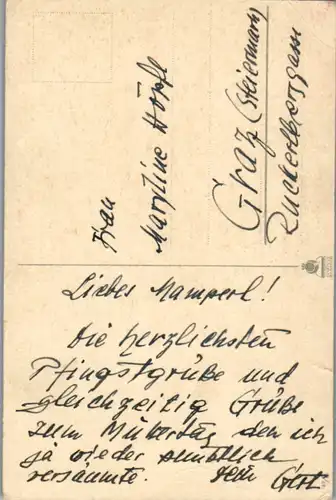 Frau
Maryline Höpfl
Graz (Steiermark)
Ruckerlberggasse
Liebes Mamperl!
Die herzlichsten
Pfingstgrüße und
gleichzeitig Grüße
zum Muttertag den ich
ja wieder
versäumte. Dein Gert